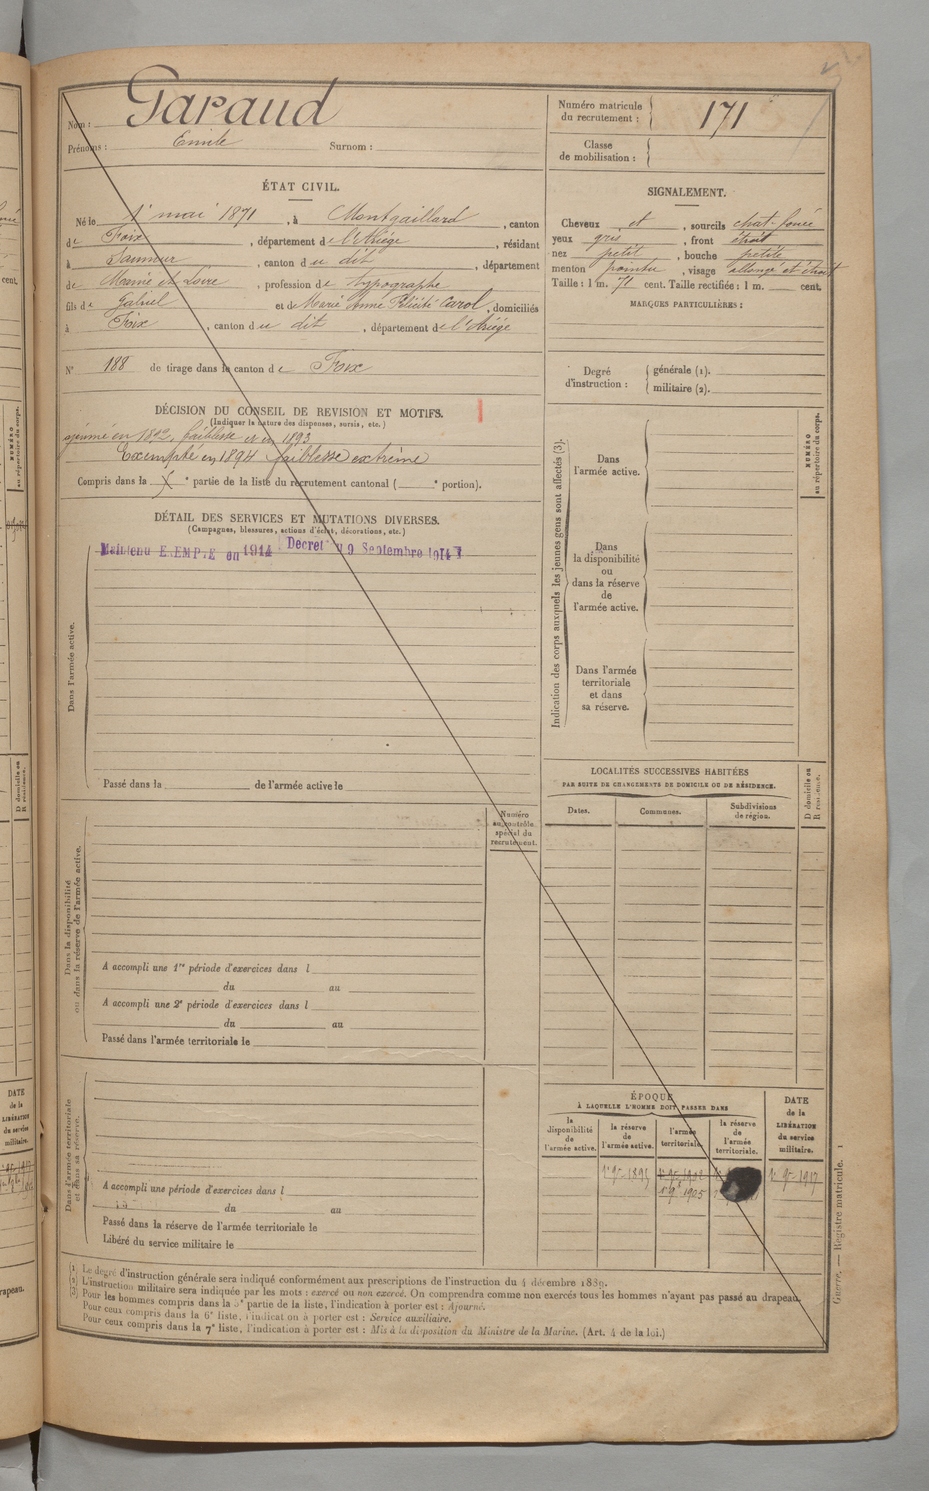 Nom : Garaud
Prénoms : Emile Surnom :
Numéro matricule du recrutement : 171
Classe de mobilisation :
ÉTAT CIVIL.
Né le 1er mai 1871, à Montgaillard, canton
de Foix, département de l'Ariège, résidant
à Saumur, canton du dit, département
de Maine et Loire, profession de typographe
fils de Gabriel et de Marie Anne Félicité Carol, domiciliés
à Foix, canton du dit, département de l'Ariège
N° 188 de tirage dans le canton de Foix
SIGNALEMENT.
Cheveux et, sourcils chat. foncé
yeux gris, front étroit
nez petit, bouche petite
menton pointu, visage allongé et étroit
Taille : 1 m. 71 cent. Taille rectifiée : 1 m. cent.
MARQUES PARTICULIÈRES :
Degré d'instruction : générale (1).
militaire (2).
DÉCISION DU CONSEIL DE REVISION ET MOTIFS.
(Indiquer la nature des dispenses, sursis, etc.)
ajourné en 1892, faiblesse et en 1893
Exempté en 1894 faiblesse extrême
Compris dans la e partie de la liste du recrutement cantonal ( e portion).
DÉTAIL DES SERVICES ET MUTATIONS DIVERSES.
(Campagnes, blessures, actions d'éclat, décorations, etc.)
Maintenu EXEMPTE en 1914 Decret 9 Septembre 1914
Dans l'armée active.
Passé dans la de l'armée active le
Indication des corps auxquels les jeunes gens sont affectés (3).
NUMÉRO au répertoire du corps.
Dans l'armée active.
Dans la disponibilité ou dans la réserve de l'armée active.
Dans l'armée territoriale et dans sa réserve.
LOCALITÉS SUCCESSIVES HABITÉES
PAR SUITE DE CHANGEMENTS DE DOMICILE OU DE RÉSIDENCE.
Dates. Communes. Subdivisions de région. D domicile ou R résidence.
Numéro au contrôle spécial du recrutement.
Dans la disponibilité ou dans la réserve de l'armée active.
A accompli une 1re période d'exercices dans l
du au
A accompli une 2e période d'exercices dans l
du au
Passé dans l'armée territoriale le
Dans l'armée territoriale et dans sa réserve.
A accompli une période d'exercices dans l
du au
Passé dans la réserve de l'armée territoriale le
Libéré du service militaire le
ÉPOQUE
À LAQUELLE L'HOMME DOIT PASSER DANS
la disponibilité de l'armée active.
la réserve de l'armée active.
l'armée territoriale.
la réserve de l'armée territoriale.
DATE de la LIBÉRATION du service militaire.
1895 1905 1917
(1) Le degré d'instruction générale sera indiqué conformément aux prescriptions de l'instruction du 4 décembre 1889.
(2) L'instruction militaire sera indiquée par les mots : exercé ou non exercé. On comprendra comme non exercés tous les hommes n'ayant pas passé au drapeau.
(3) Pour les hommes compris dans la 5e partie de la liste, l'indication à porter est : Ajourné.
Pour ceux compris dans la 6e liste, l'indication à porter est : Service auxiliaire.
Pour ceux compris dans la 7e liste, l'indication à porter est : Mis à la disposition du Ministre de la Marine. (Art. 4 de la loi.)
Guerre. — Registre matricule. 1